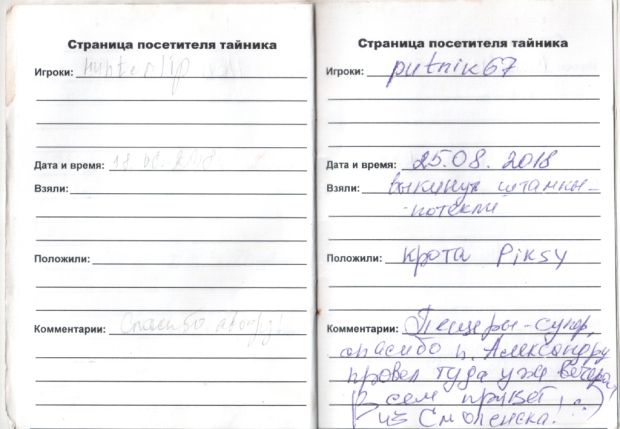 Страница посетителя тайника
Игроки:
Дата и время: 18.08.2018
Взяли:
Положили:
Комментарии: Спасибо автору!
Страница посетителя тайника
Игроки: putnik67
Дата и время: 25.08. 2018
Взяли: выкинул штампы-
потекли
Положили: крота Piksy
Комментарии: Пещеры-супер,
спасибо п. Александру
провел туда уже вечера,
Всем привет
из Смоленска! :)